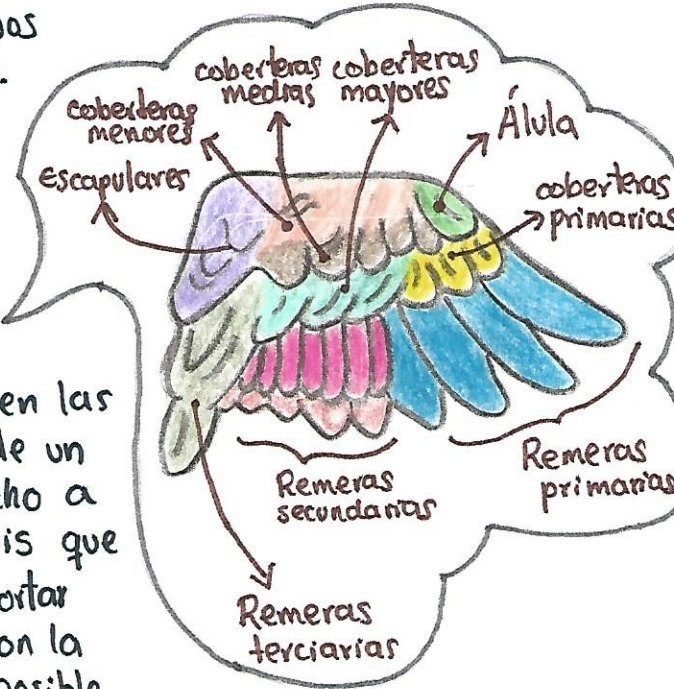 coberteras
medias
coberteras
mayores
coberteras
menores
Álula
Escapulares
coberteras
primarias
en las
de un
a
que
Remeras
secundarias
Remeras
primarias
Remeras
terciarias
con la